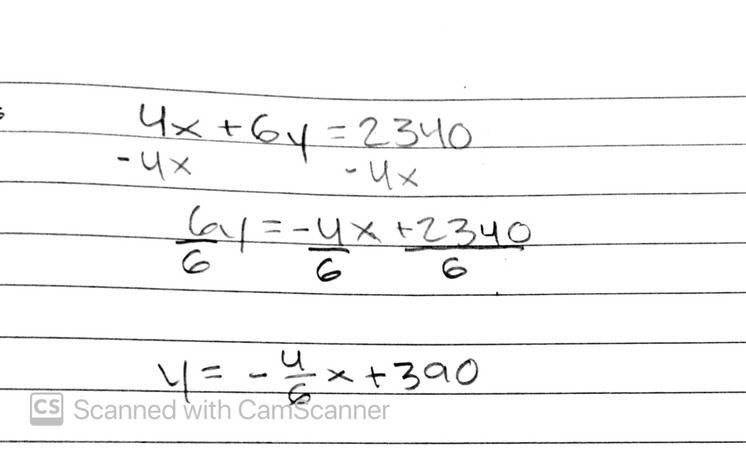 4x + 6y = 2340
-4x -4x
6y = -4x + 2340
6 6 6
y = - 4/6 x + 390
CS Scanned with CamScanner